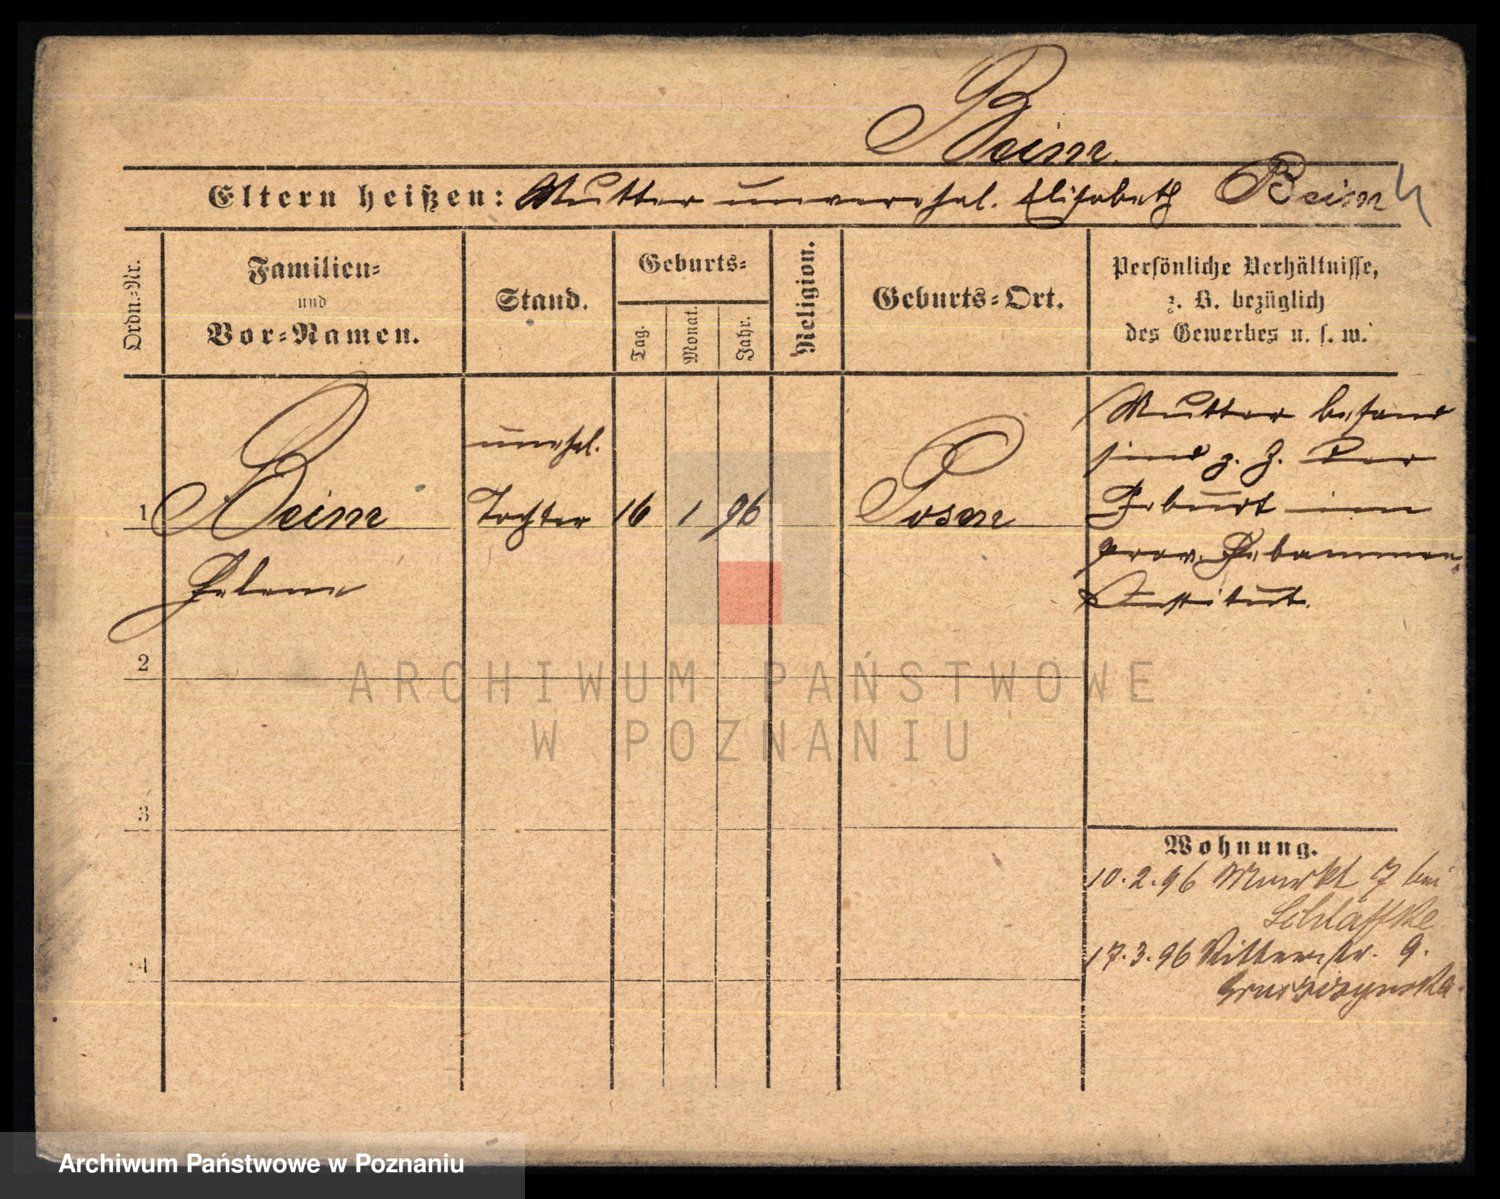 Beim
Eltern heißen: Mutter unverehel. Elisabeth Beim
Ordn.-Nr.
Familien-
und
Vor-Namen.
Stand.
Geburts-
Tag.
Monat.
Jahr.
Religion.
Geburts-Ort.
Persönliche Verhältnisse,
z. B. bezüglich
des Gewerbes u. s. w.
1
Beim
Helene
unehel.
Tochter
16
1
96
Posen
Mutter befand
sich z. Z. der
Geburt im
prov. Hebammen-
Institut.
2
3
4
Wohnung.
10.2.96 Markt 7 bei
Schlaffke
17.3.96 Ritterstr. 9.
ARCHIWUM PAŃSTWOWE
W POZNANIU
Archiwum Państwowe w Poznaniu